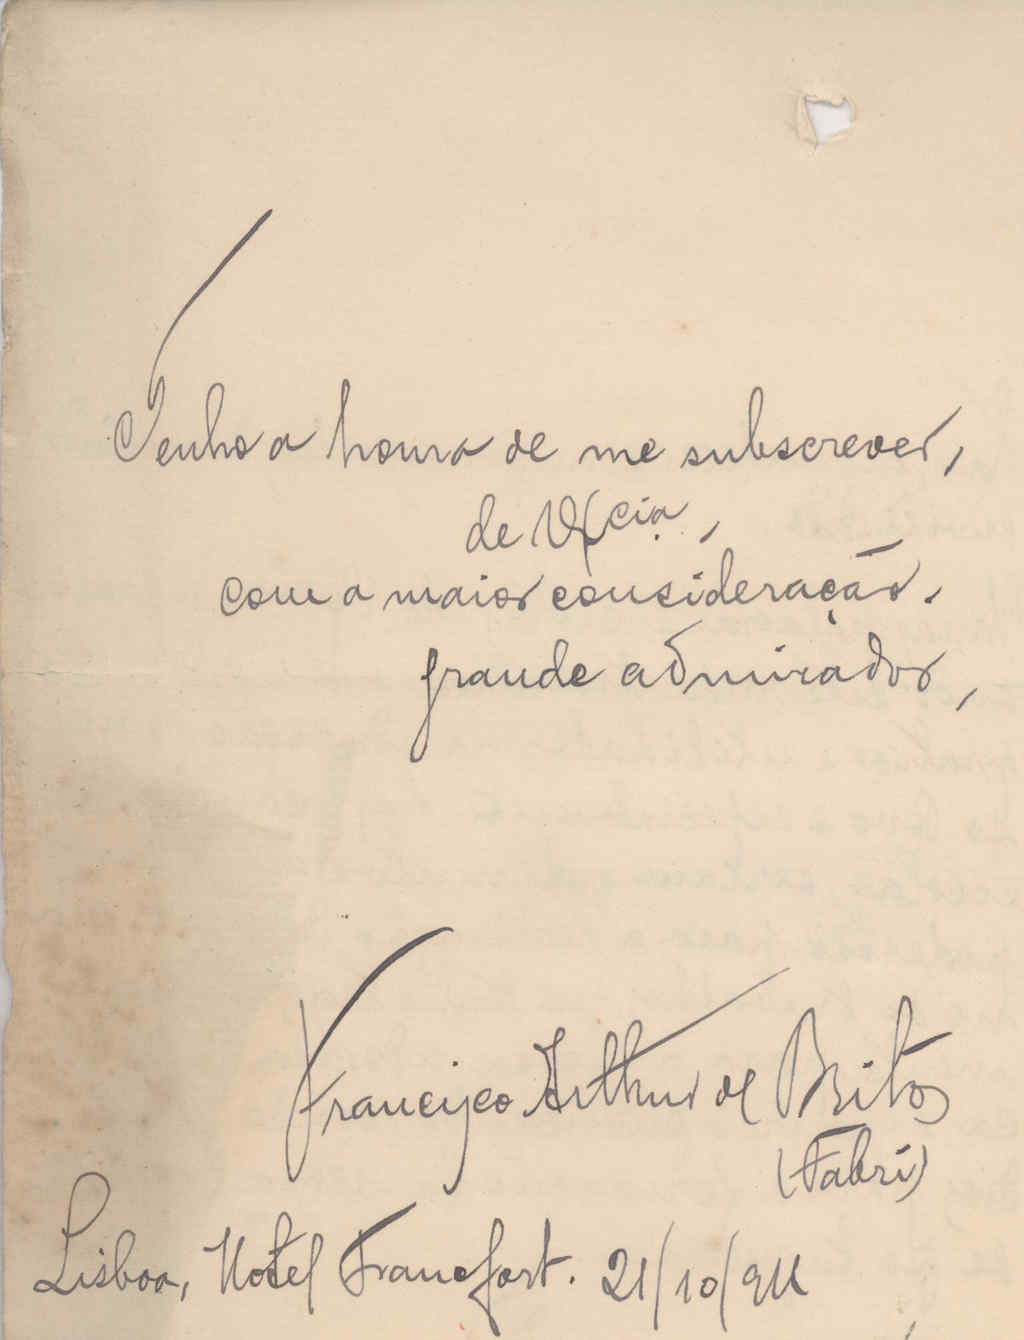 Tenho a honra de me subscrever,
de V. Excia.,
com a maior consideração.
grande admirador,
Francisco Arthur de Brito
(Fabri)
Lisboa, Hotel Francfort. 21/10/911